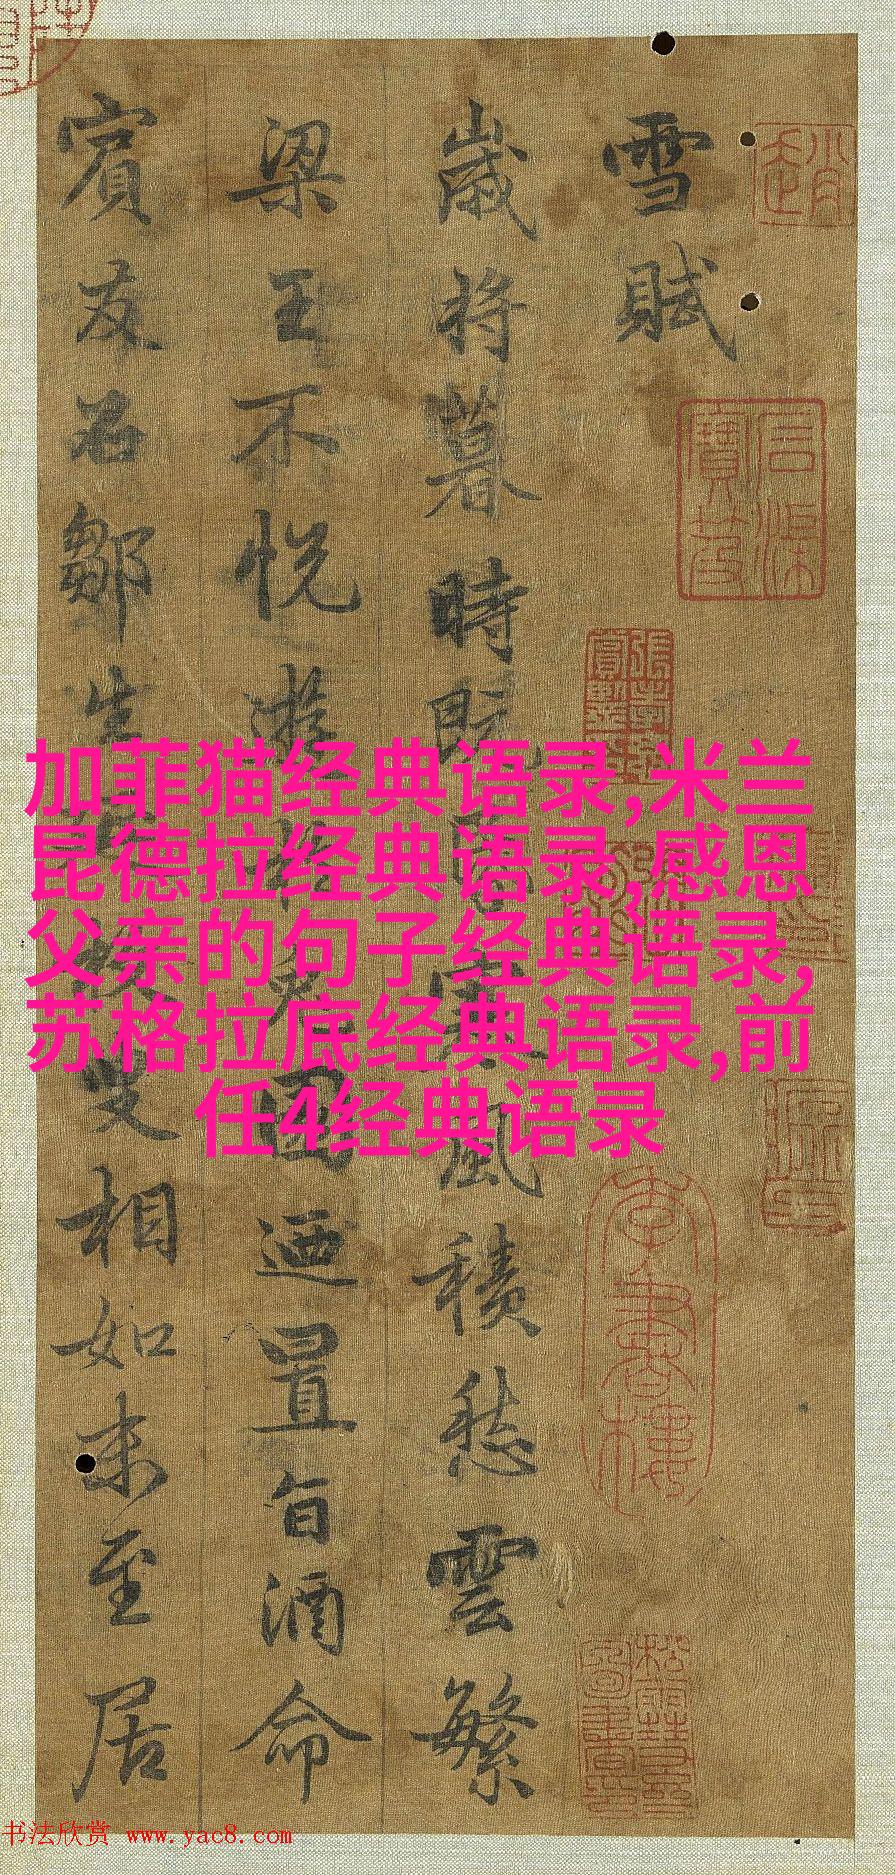 雪賦
歲將暮時既昏寒風積愁雲繁
梁王不悅遊於兔園迺置旨酒命
賓友召鄒生延枚叟相如末至居
加菲猫经典语录,米兰
昆德拉经典语录,感恩
父亲的句子经典语录,
苏格拉底经典语录,前
任4经典语录
书法欣赏 www.yac8.com